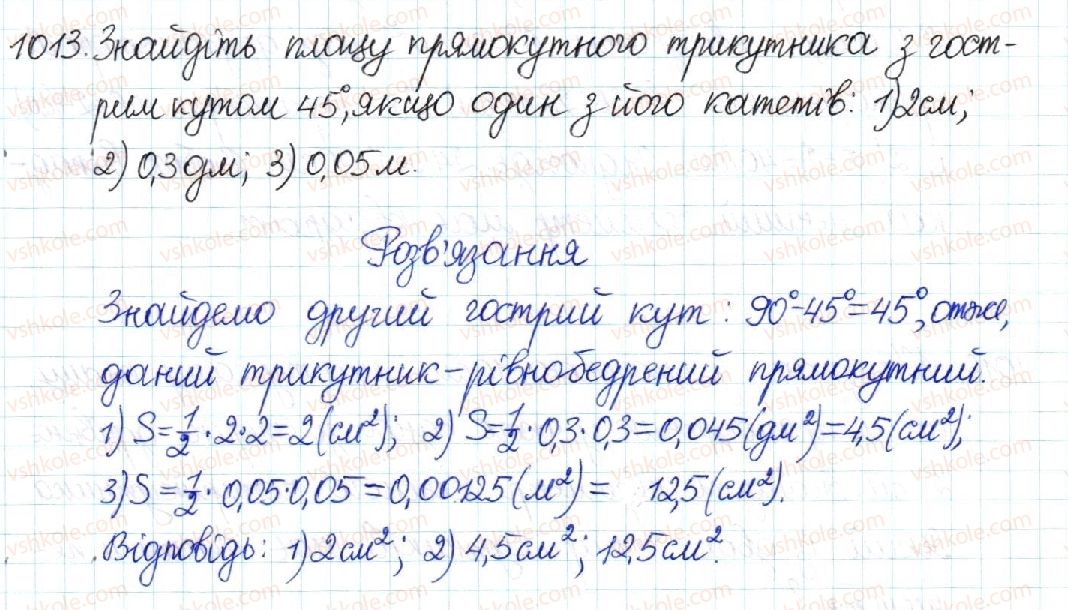 1013. Знайдіть площу прямокутного трикутника з гост-
рим кутом 45°, якщо один з його катетів: 1) 2 см;
2) 0,3 дм; 3) 0,05 м.
Розв'язання
Знайдемо другий гострий кут: 90°-45°=45°, отже,
даний трикутник – рівнобедрений прямокутний.
1) S = 1/2 · 2 · 2 = 2 (см²); 2) S = 1/2 · 0,3 · 0,3 = 0,045 (дм²) = 4,5 (см²);
3) S = 1/2 · 0,05 · 0,05 = 0,00125 (м²) = 12,5 (см²).
Відповідь: 1) 2 см²; 2) 4,5 см²; 12,5 см².